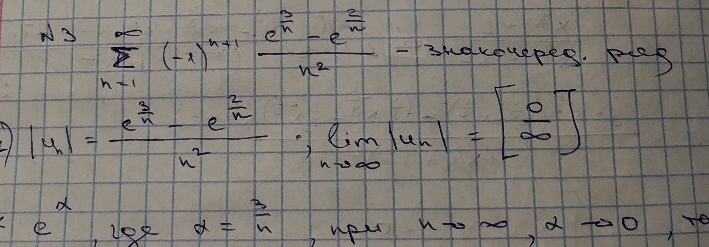 N3 ∑_{n=1}^{∞} (-1)^{n+1} \frac{e^{\frac{3}{n}} - e^{\frac{2}{n}}}{n^2} - знакочеред. ряд
) |u_n| = \frac{e^{\frac{3}{n}} - e^{\frac{2}{n}}}{n^2} ; lim_{n→∞} |u_n| = [\frac{0}{∞}]
e^α, где α = \frac{3}{n}, при n→∞, α→0, то